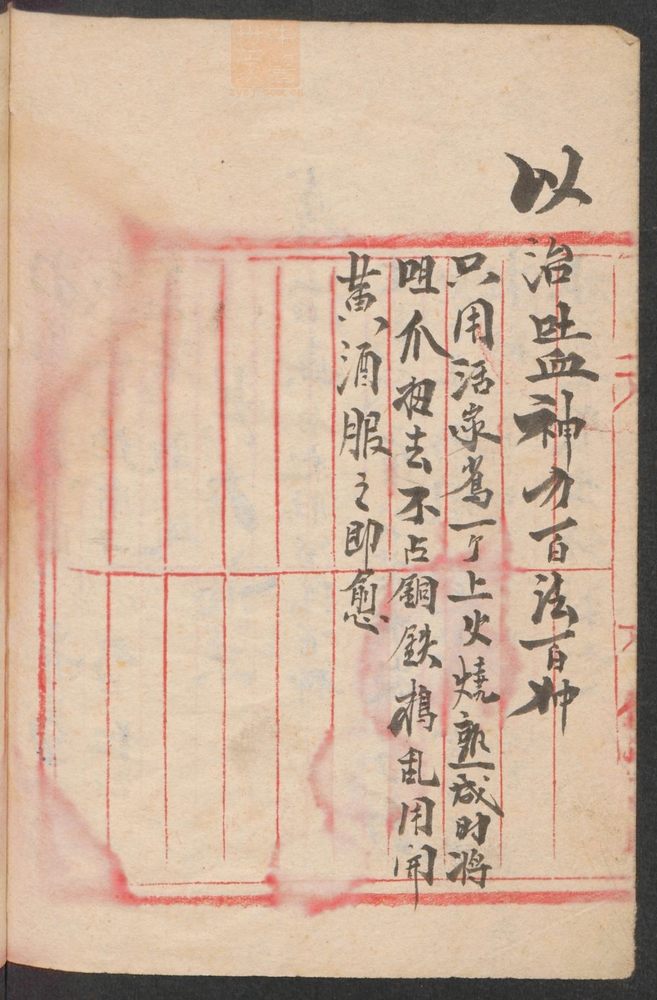 以治吐血神方百法百神
只用活家雀一个上火燒熟成时将
咀爪祖去不占銅鉄搗乱用開
黄酒服之即愈